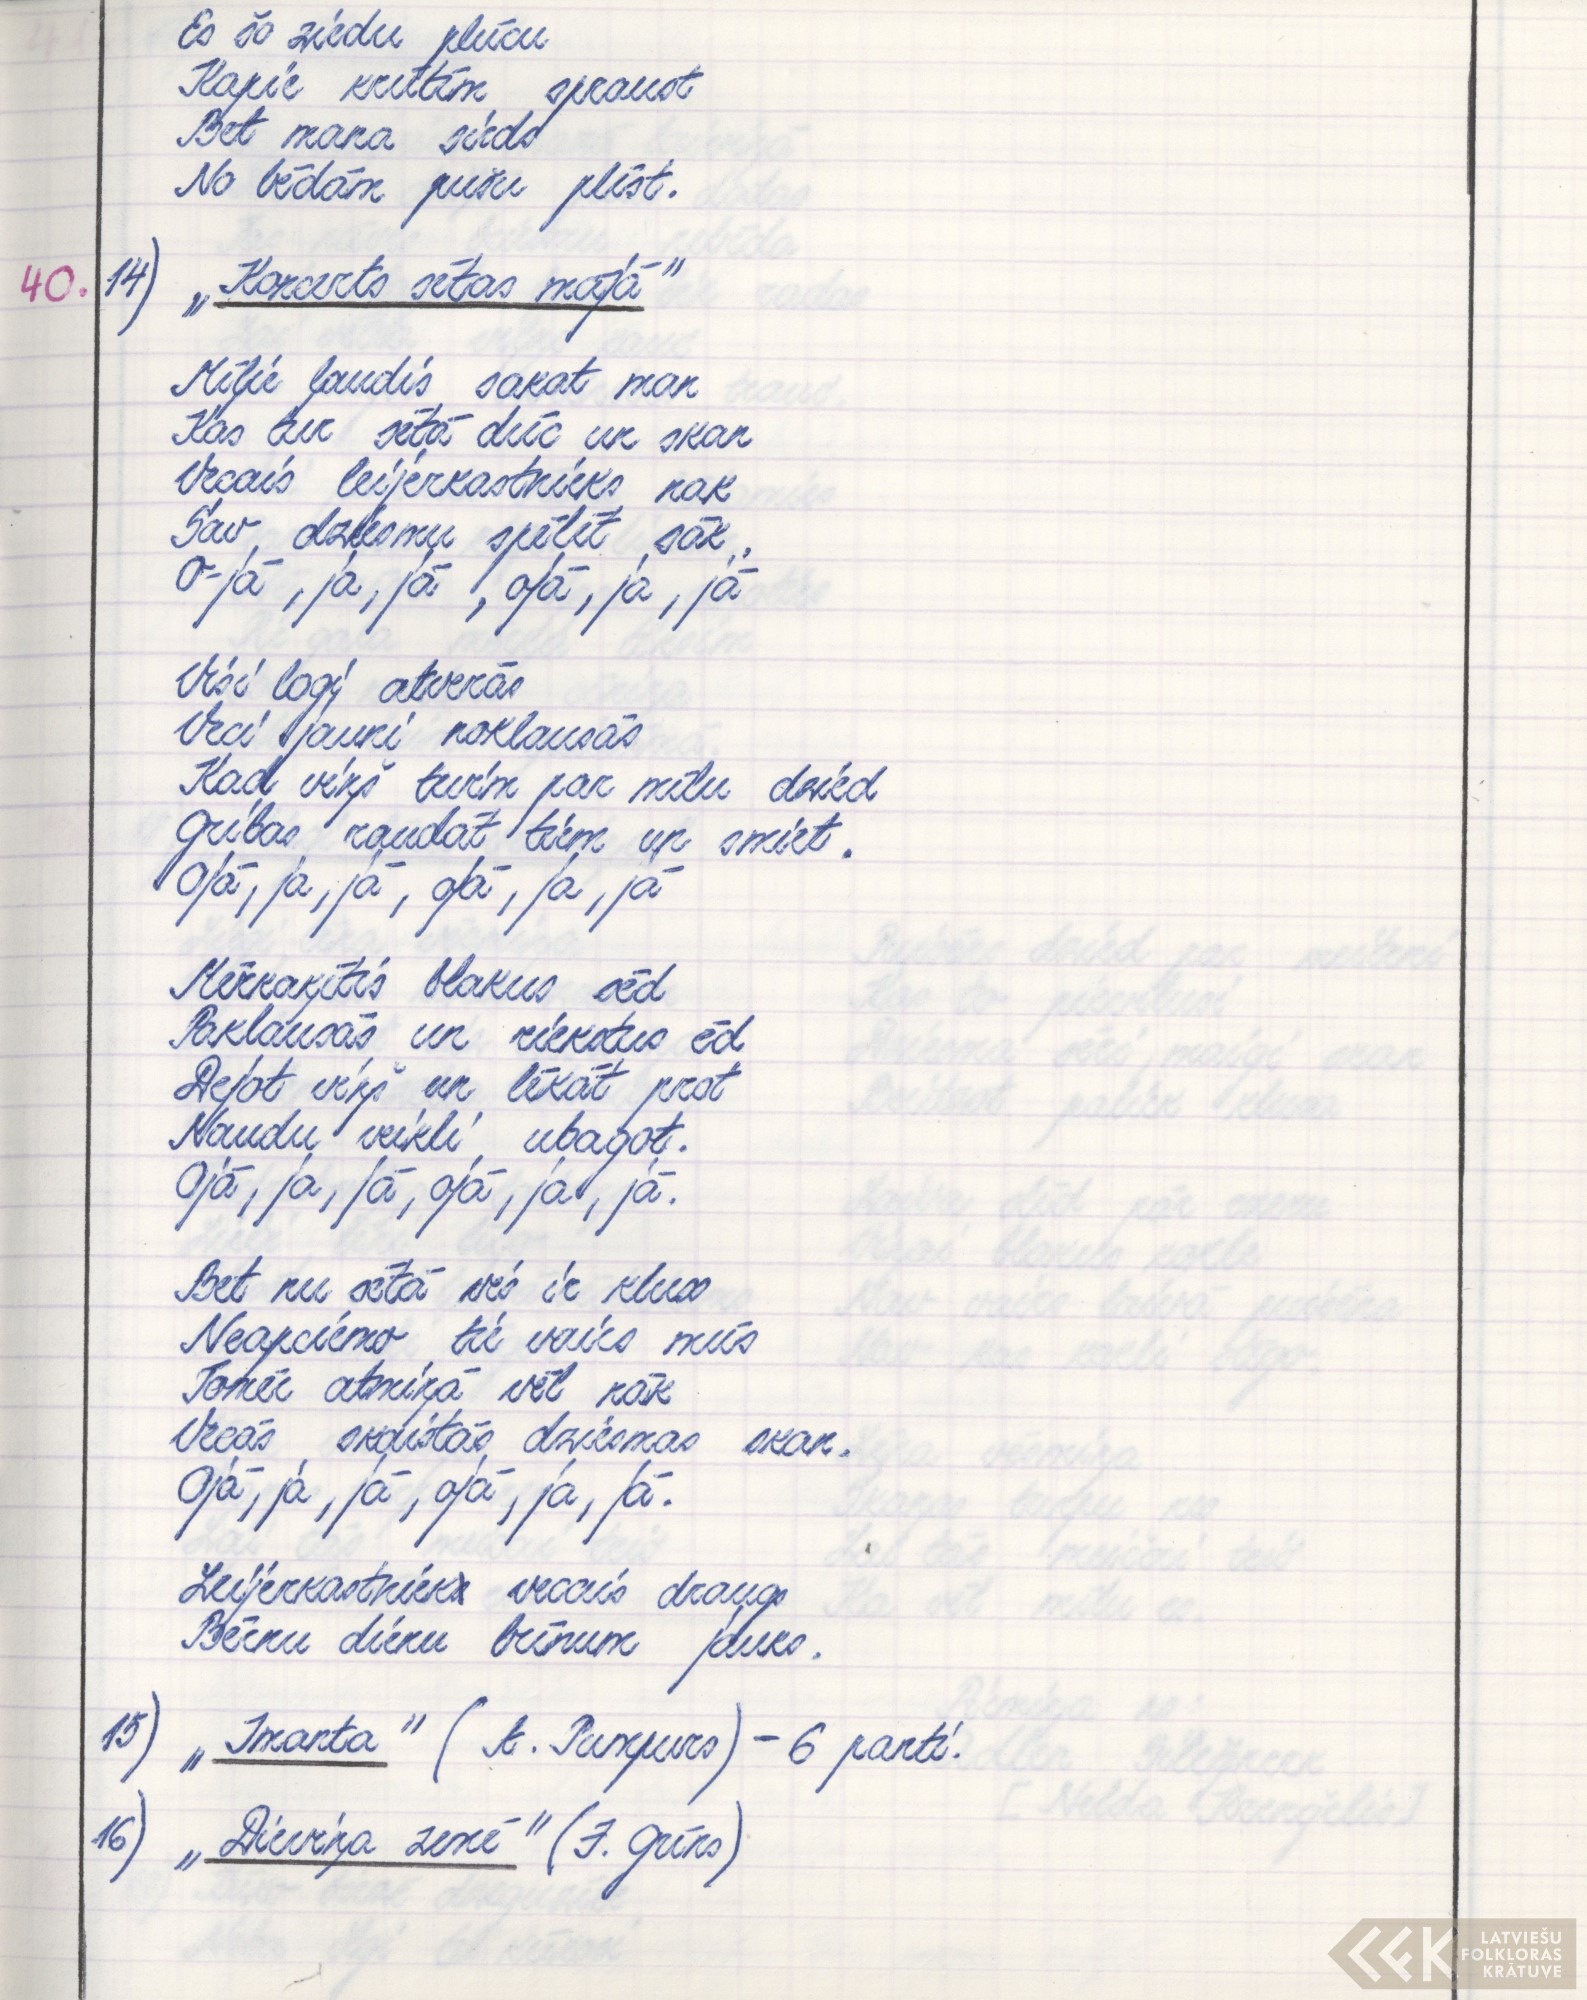 Es šo ziedu plūcu
Kapie krūtīm spraust
Bet mana sirds
No bēdām pušu plīst.
40. 14) „Koncerts sētas mājā”
Mīļie ļaudis sakat man
Kas tur sētā dūc un skan
Vecais leijerkastnieks nak
Sav dziesmu spēlēt sāk.
O-jā, ja, jā, ojā, ja, jā
Visi logi atverās
Veci jauni noklausās
Kad viņš turim par mīlu dzied
Gribas raudāt tiem un smiet.
Ojā, ja, jā, ojā, ja, jā
Mērkaķītis blakus sēd
Paklausās un riekstus ēd
Dejot viņš un lēkāt prot
Naudu veikli ubagot.
Ojā, ja, jā, ojā, ja, jā.
Bet nu sētā viss ir kluss
Neapciemo tie vairs mūs
Tomēr atmiņā vēl nāk
Vecās skaistās dziesmas skan.
Ojā, jā, jā, ojā, ja, jā.
Leijerkastnieks vecais draugs
Bērnu dienu brīnum jauks.
15) „Imanta” (A. Pumpurs) – 6 panti.
16) „Dieviņa zemē” (J. Grīns)
LATVIEŠU
FOLKLORAS
KRĀTUVE